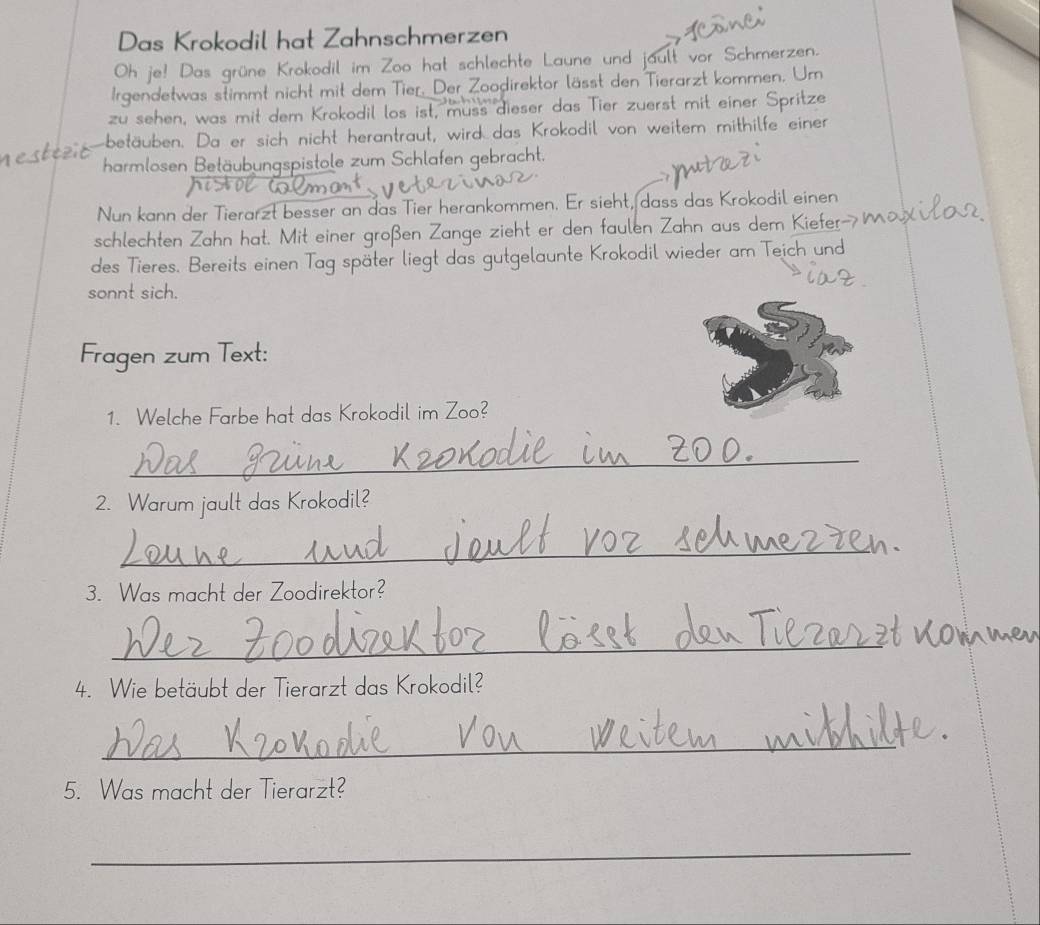 Das Krokodil hat Zahnschmerzen
scânci
Oh je! Das grüne Krokodil im Zoo hat schlechte Laune und jault vor Schmerzen.
Irgendetwas stimmt nicht mit dem Tier. Der Zoodirektor lässt den Tierarzt kommen. Um
zu sehen, was mit dem Krokodil los ist, muss dieser das Tier zuerst mit einer Spritze
betäuben. Da er sich nicht herantraut, wird das Krokodil von weitem mithilfe einer
harmlosen Betäubungspistole zum Schlafen gebracht.
pistol calmant, veterinar.
putrezi
Nun kann der Tierarzt besser an das Tier herankommen. Er sieht, dass das Krokodil einen
schlechten Zahn hat. Mit einer großen Zange zieht er den faulen Zahn aus dem Kiefer maxilar.
des Tieres. Bereits einen Tag später liegt das gutgelaunte Krokodil wieder am Teich und
iaz.
sonnt sich.
Fragen zum Text:
1. Welche Farbe hat das Krokodil im Zoo?
Das grüne Krokodie im Zoo.
2. Warum jault das Krokodil?
Loune und joult vor schmerzen.
3. Was macht der Zoodirektor?
Der Zoodirektor lässt den Tierarzt kommen
4. Wie betäubt der Tierarzt das Krokodil?
Das Krokodie von weitem mithilfe.
5. Was macht der Tierarzt?